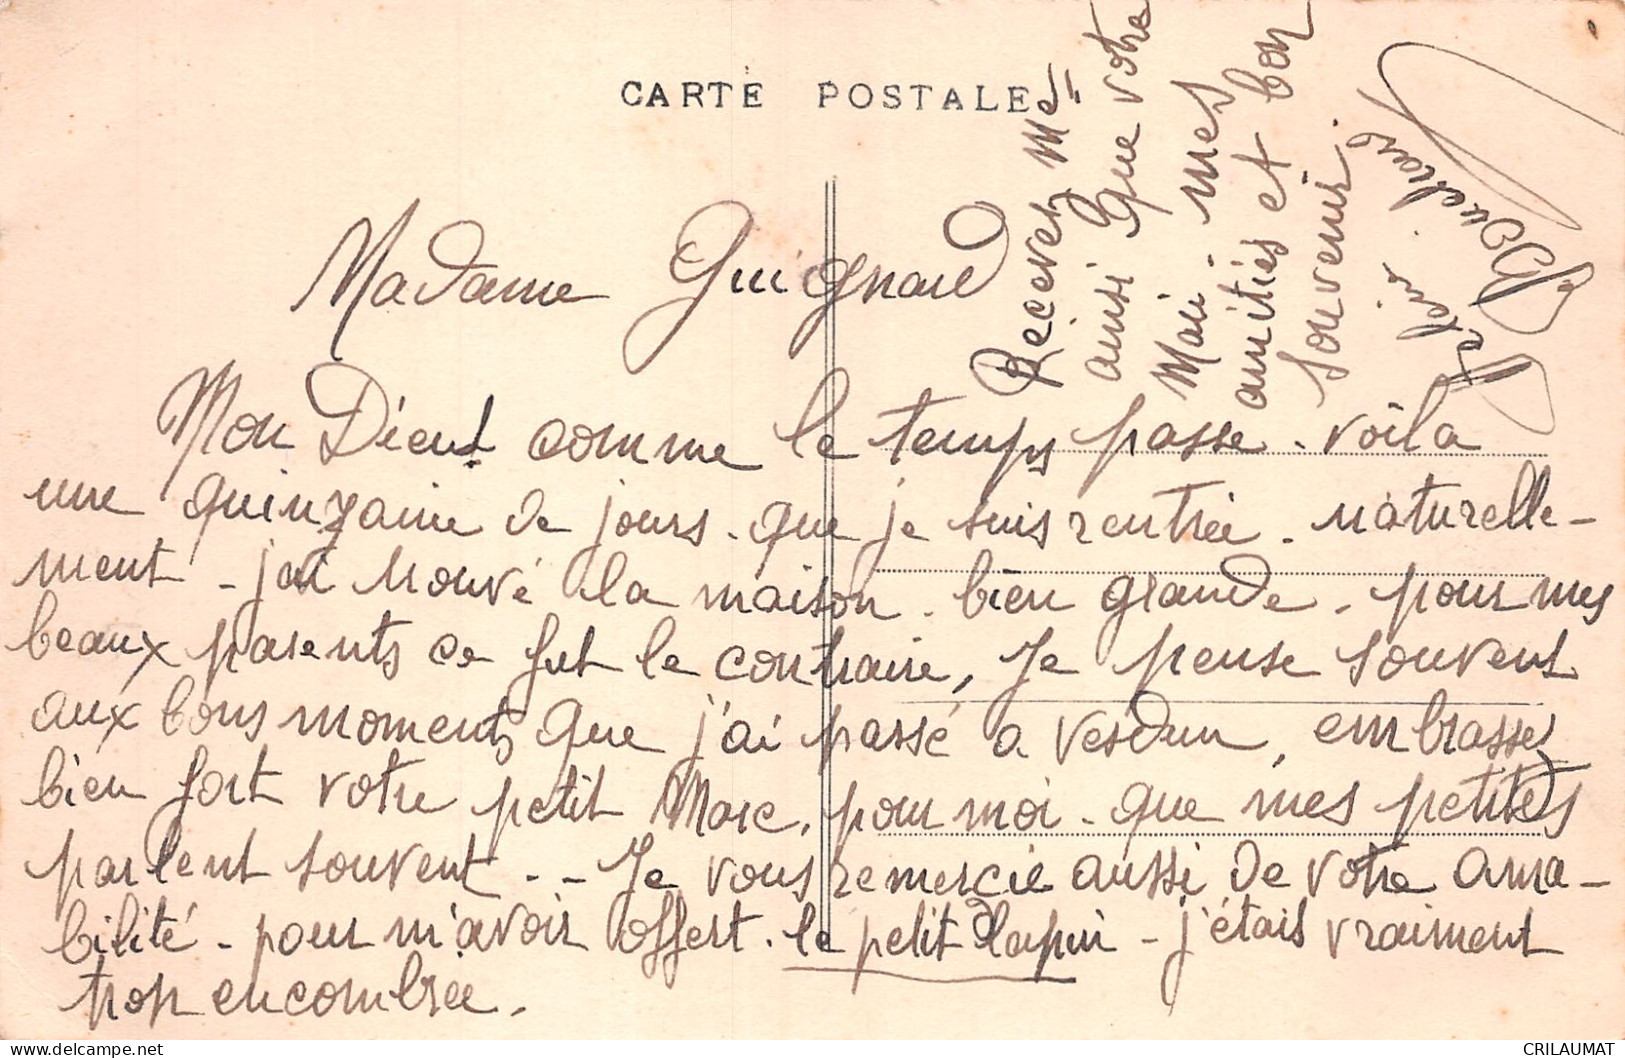 CARTE POSTALE
Madame Guignard
Mon Dieu! comme le temps passe. voila
une quinzaine de jours. que je suis rentrée. naturelle-
ment - j'ai trouvé la maison. bien grande. pour mes
beaux parents ce fut le contraire, Je pense souvent
aux bons moments que j'ai passé a Vesdun, embrassez
bien fort votre petit Marc. pour moi. que mes petites
parlent souvent - - Je vous remercie aussi de votre ama-
bilité - pour m'avoir offert. le petit lapin - j'étais vraiment
trop encombrée.
Recevez Me
ainsi que votre
Mari. mes
amitiés et bon
souvenir.
CRILAUMAT